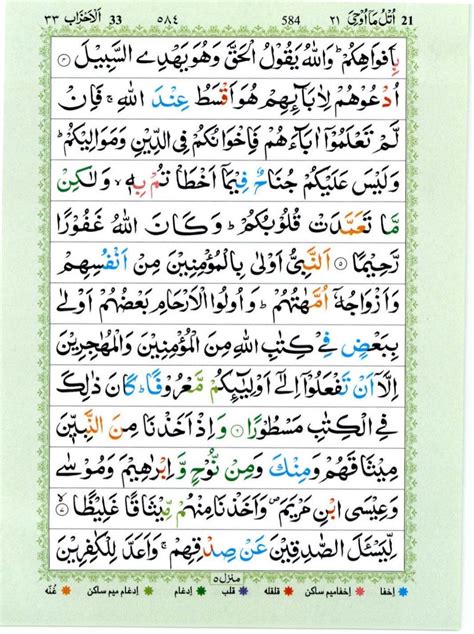 21 اُتۡلُ مَاۤ اُوۡحِیَ ٢١ 584 ٥٨٤ 33 اَلۡاَحۡزَاب ٣٣
بِاَفۡوَاهِكُمۡ ؕ وَاللّٰهُ يَقُوۡلُ الۡحَـقَّ وَهُوَ يَهۡدِى السَّبِيۡلَ ٤
اُدۡعُوۡهُمۡ لِاٰبَآئِهِمۡ هُوَ اَقۡسَطُ عِنۡدَ اللّٰهِ ۚ فَاِنۡ
لَّمۡ تَعۡلَمُوۡۤا اٰبَآءَهُمۡ فَاِخۡوَانُكُمۡ فِى الدِّيۡنِ وَمَوَالِيۡكُمۡ ؕ
وَ لَيۡسَ عَلَيۡكُمۡ جُنَاحٌ فِيۡمَاۤ اَخۡطَاۡ تُمۡ بِهٖۙ وَلٰكِنۡ
مَّا تَعَمَّدَتۡ قُلُوۡبُكُمۡ ؕ وَكَانَ اللّٰهُ غَفُوۡرًا
رَّحِيۡمًا ٥ اَلنَّبِىُّ اَوۡلٰى بِالۡمُؤۡمِنِيۡنَ مِنۡ اَنۡفُسِهِمۡ
وَاَزۡوَاجُهٗۤ اُمَّهٰتُهُمۡ ؕ وَاُولُوا الۡاَرۡحَامِ بَعۡضُهُمۡ اَوۡلٰى
بِبَعۡضٍ فِىۡ كِتٰبِ اللّٰهِ مِنَ الۡمُؤۡمِنِيۡنَ وَالۡمُهٰجِرِيۡنَ
اِلَّاۤ اَنۡ تَفۡعَلُوۡۤا اِلٰٓى اَوۡلِيٰٓئِكُمۡ مَّعۡرُوۡفًا ؕ كَانَ ذٰ لِكَ
فِى الۡكِتٰبِ مَسۡطُوۡرًا ٦ وَاِذۡ اَخَذۡنَا مِنَ النَّبِيّٖنَ
مِيۡثَاقَهُمۡ وَمِنۡكَ وَمِنۡ نُّوۡحٍ وَّاِبۡرٰهِيۡمَ وَمُوۡسٰى
وَعِيۡسَى ابۡنِ مَرۡيَمَ ۖ وَاَخَذۡنَا مِنۡهُمۡ مِّيۡثَاقًا غَلِيۡظًا ۙ ٧
لِّيَسۡئَلَ الصّٰدِقِيۡنَ عَنۡ صِدۡقِهِمۡ ۚ وَاَعَدَّ لِلۡكٰفِرِيۡنَ
منزل ٥
اِخفا اخفامیم ساکن قلقله قلب اِدغام اِدغام میم ساکن غُنّه